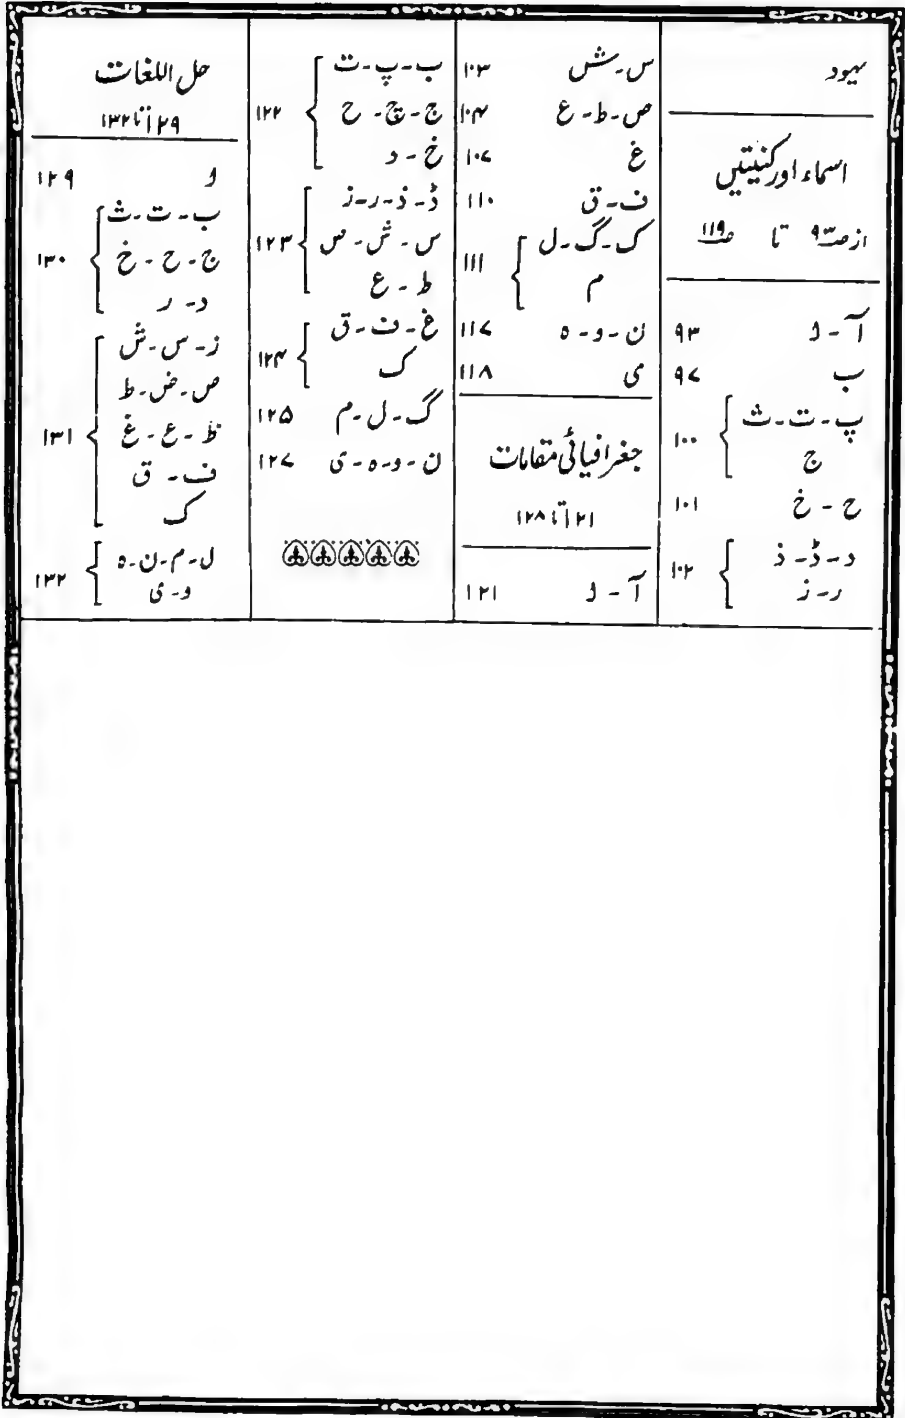 یہود
اسماء اور کنیتیں
از صـ۹۳ تا صـ۱۱۹
آ - ا ۹۳
ب ۹۷
پ - ت - ث
ج ۱۰۰
ح - خ ۱۰۱
د - ڈ - ذ
ر - ز ۱۰۲
س - ش ۱۰۳
ص - ط - ع ۱۰۴
غ ۱۰۷
ف - ق ۱۱۰
ک - گ - ل
م ۱۱۱
ن - و - ہ ۱۱۷
ی ۱۱۸
جغرافیائی مقامات
۱۲۱ تا ۱۲۸
آ - ا ۱۲۱
ب - پ - ت
ج - چ - ح ۱۲۲
خ - د
ڈ - ذ - ر - ز
س - ش - ص ۱۲۳
ط - ع
غ - ف - ق
ک ۱۲۴
گ - ل - م ۱۲۵
ن - و - ہ - ی ۱۲۷
حل اللغات
۱۲۹ تا ۱۳۲
ا ۱۲۹
ب - ت - ث
ج - ح - خ ۱۳۰
د - ر
ز - س - ش
ص - ض - ط
ظ - ع - غ ۱۳۱
ف - ق
ک
ل - م - ن - ہ
و - ی ۱۳۲